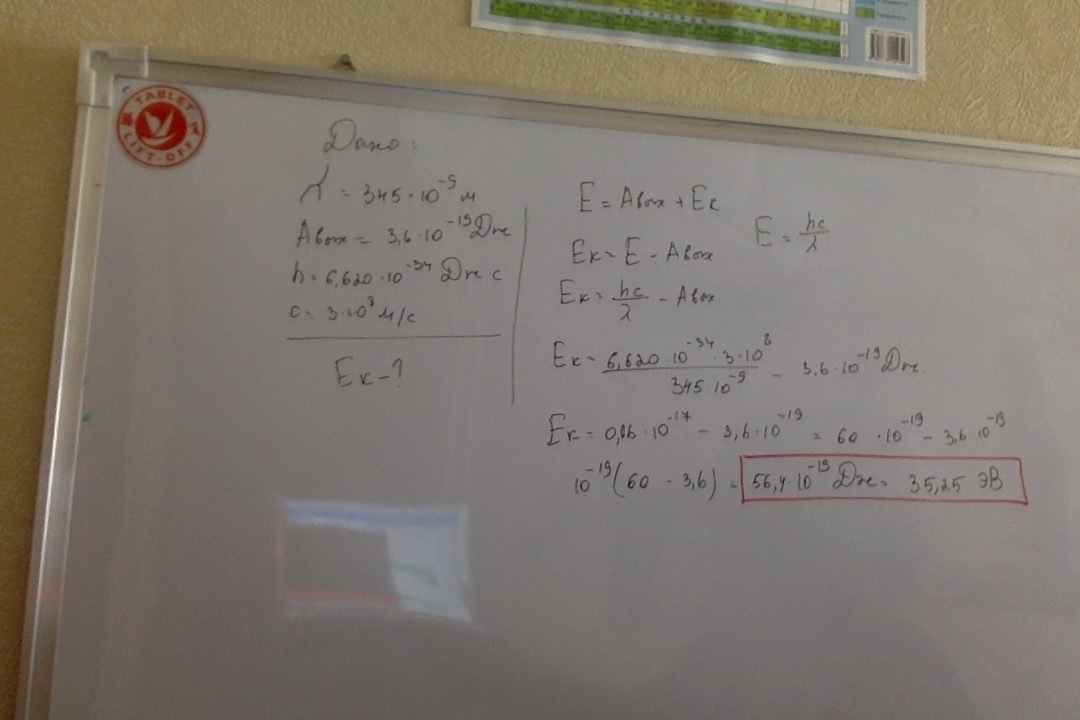 TABLET
LIFT-OFF
Дано:
λ = 345·10⁻⁹ м
Aвых = 3,6·10⁻¹⁹ Дж
h = 6,620·10⁻³⁴ Дж с
c = 3·10⁸ м/с
Eк - ?
E = Aвых + Eк
E = hc/λ
Eк = E - Aвых
Eк = hc/λ - Aвых
Eк = 6,620·10⁻³⁴·3·10⁸ / 345·10⁻⁹ - 3,6·10⁻¹⁹ Дж.
Eк = 0,06·10⁻¹⁷ - 3,6·10⁻¹⁹ = 60·10⁻¹⁹ - 3,6·10⁻¹⁹
10⁻¹⁹(60 - 3,6) = 56,4·10⁻¹⁹ Дж = 35,25 эВ